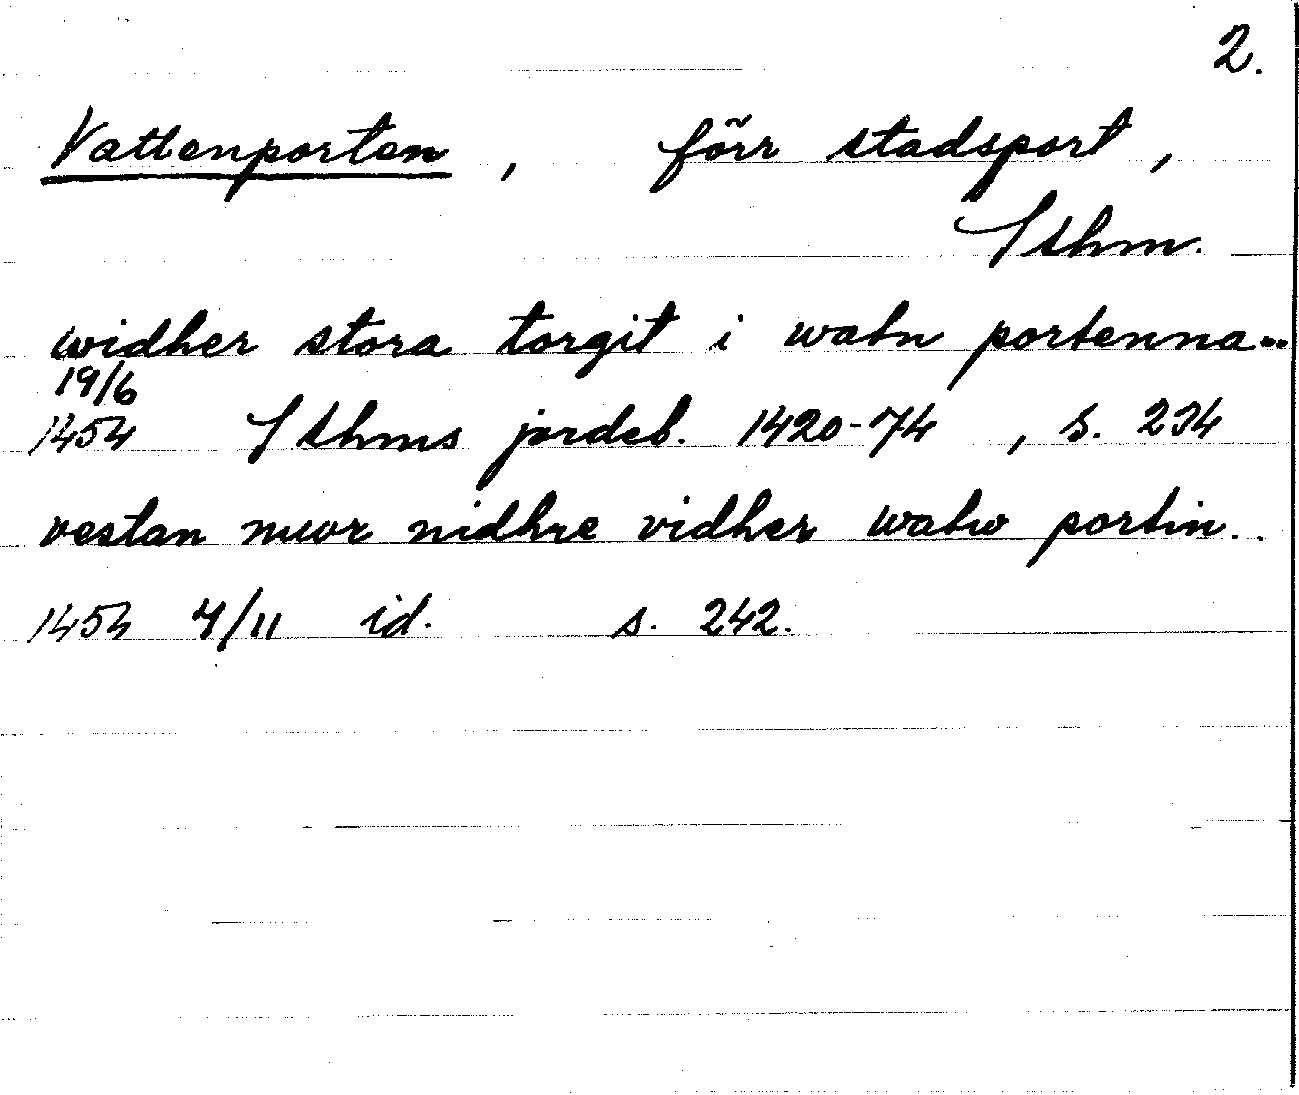 2.
Vattenporten, förr stadsport,
Sthm.
widher stora torgit i watn portenna...
19/6
1454 Sthms jordeb. 1420-74, s. 234
vestan mwr nidhre vidher watw portin..
1454 4/11 id. s. 242.